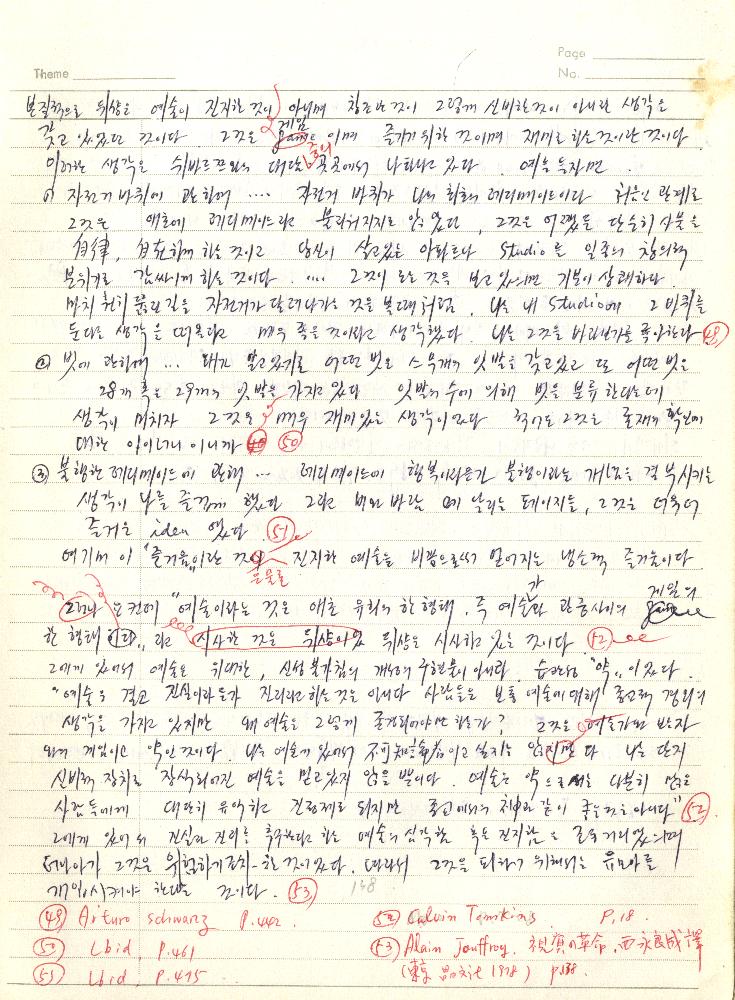 Page
Theme
No.
본질적으로 뒤샹은 예술이 진지한 것이 아니며 창조란 것이 그렇게 신비한 것이 아니란 생각을
갖고 있었던 것이다. 그것은 게임 이며 즐기기 위한 것이며 재미로 하는 것이란 것이다
이러한 생각은 대담 중의 곳곳에서 나타나고 있다. 예를 들자면.
① 자전거 바퀴에 관하여 .... 자전거 바퀴가 나의 최초의 레디메이드이다
그것은 애초에 레디메이드라고 불리워지지도 않았다, 그것은 어쨌든 단순히 사물을
自律, 自在하게 하는 것이고 당신이 살고있는 아파트나 Studio를 일종의 창의적
분위기로 감싸이게 하는 것이다. .... 그것이 도는 것을 보고 있으면 기분이 상쾌하다.
마치 길을 자전거가 달려나가는 것을 볼 때처럼. 나는 내 Studio에 그 바퀴를
둔다는 생각을 떠올리고 매우 좋은 것이라고 생각했다. 나는 그것을 바라보기를 좋아한다 ㊾
② 빗에 관하여 ... 내가 알고있기로 어떤 빗은 스무개의 잇발을 갖고있고 또 어떤 빗은
28개 혹은 29개의 잇발을 가지고 있다 잇발의 수에 의해 빗을 분류한다는데
생각이 미치자 그것은 매우 재미있는 생각이었다 적어도 그것은 존재의 확인에
대한 아이디어이니까 ㊿
③ 불행한 레디메이드에 관해 ... 레디메이드에 행복이라든가 불행이라는 개념을 결부시키는
생각이 나를 즐겁게 했다 그리고 비와 바람에 날리는 페이지들, 그것은 더욱더
즐거운 idea 였다. (51)
여기의 이 "즐거움"이란 것은 진지한 예술을 비꼼으로써 얻어지는 냉소적 즐거움이다.
그러나 "예술이라는 것은 애초 유희의 한 형태, 즉 예술가와 관중사이의 게임의
한 형태이다," 라고 뒤샹은 시사하고 있는 것이다.
그에게 있어서 예술은 위대한, 신성불가침의 개성의 구현물이 아니라, "약" 이었다.
"예술은 결코 진실이라든가 진리라고 하는 것은 아니다 사람들은 보통 예술에 대해 종교적 경외의
생각을 가지고 있지만 왜 예술은 그렇게 존경되어야만 하는가? 그것은
게임이고 약인 것이다. 나는 예술에 있어서 不可知論者이고 싶지는 않다 나는 단지
신비적 장치로 장식되어진 예술을 믿고있지 않을 뿐이다. 예술은 약으로서는 다분히 많은
사람들에게 대단히 유익하고 진정제로 되지만 종교에서의 神과 같이 좋은 것은 아니다" (52)
그에게 있어서 진실과 진리를 추구한다고 하는 예술의 심각함 혹은 진지함은 불필요하였으며
더나아가 그것은 위험하기조차 한 것이었다. 따라서 그것을 피하기 위해서는 유모아를
개입시켜야 한다는 것이다. (53)
138
㊾ Arturo schwarz P.442
㊿ Lbid, P.461
(51) Lbid, P.475
(52) Calvin Tomkins P.18.
(53) Alain Jouffroy, 視覚の革命, 西永良成譯
(東京 晶文社 1978) p.138